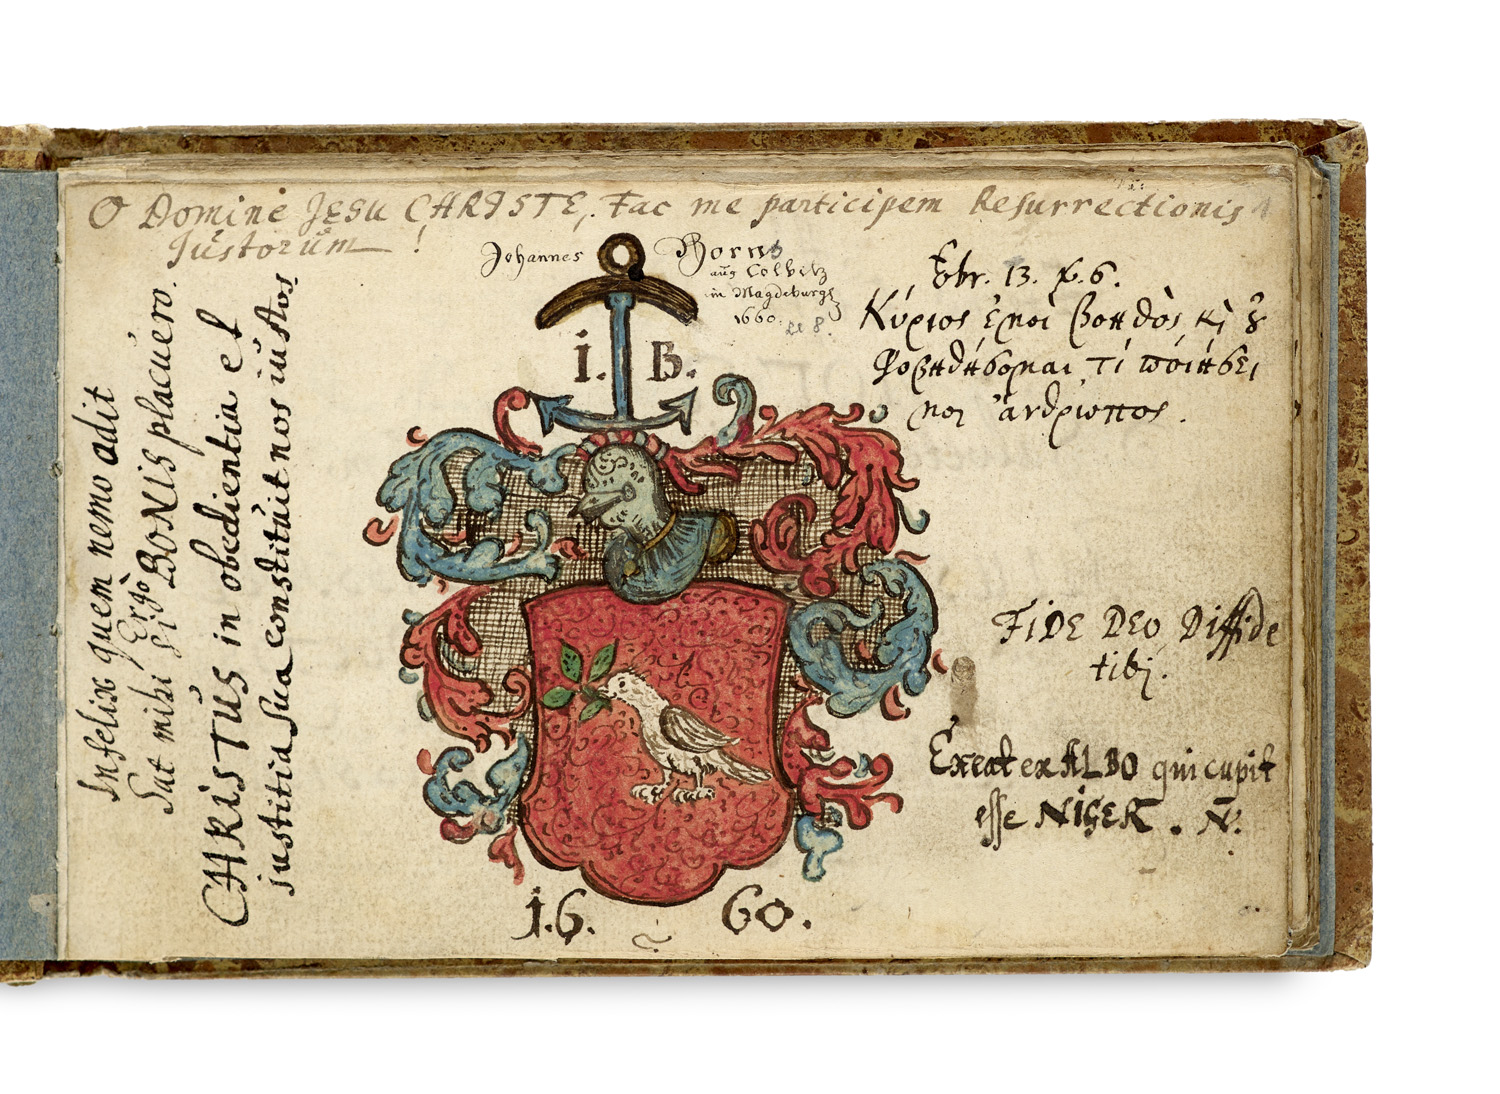 O Domine JESU CHRISTE, Fac me participem Resurrectionis
Justorum !
Johannes Bornus
aus Colbitz
in Magdeburg
1660.
I. B.
Ebr. 13. v. 6.
Κύριος ἐμοὶ βοηθὸς κὶ ȣ
φοβηθήσομαι τί ποιήσει
μοι ἄνθρωπος.
Infelix quem nemo adit
Ergò
Sat mihi si BONIS placuero.
CHRISTUS in obedientia el
justitia sua constituit nos iustos
FIDE DEO Diffide
tibj.
Exeat ex ALBO qui cupit
esse NIGER. N.
16. 60.